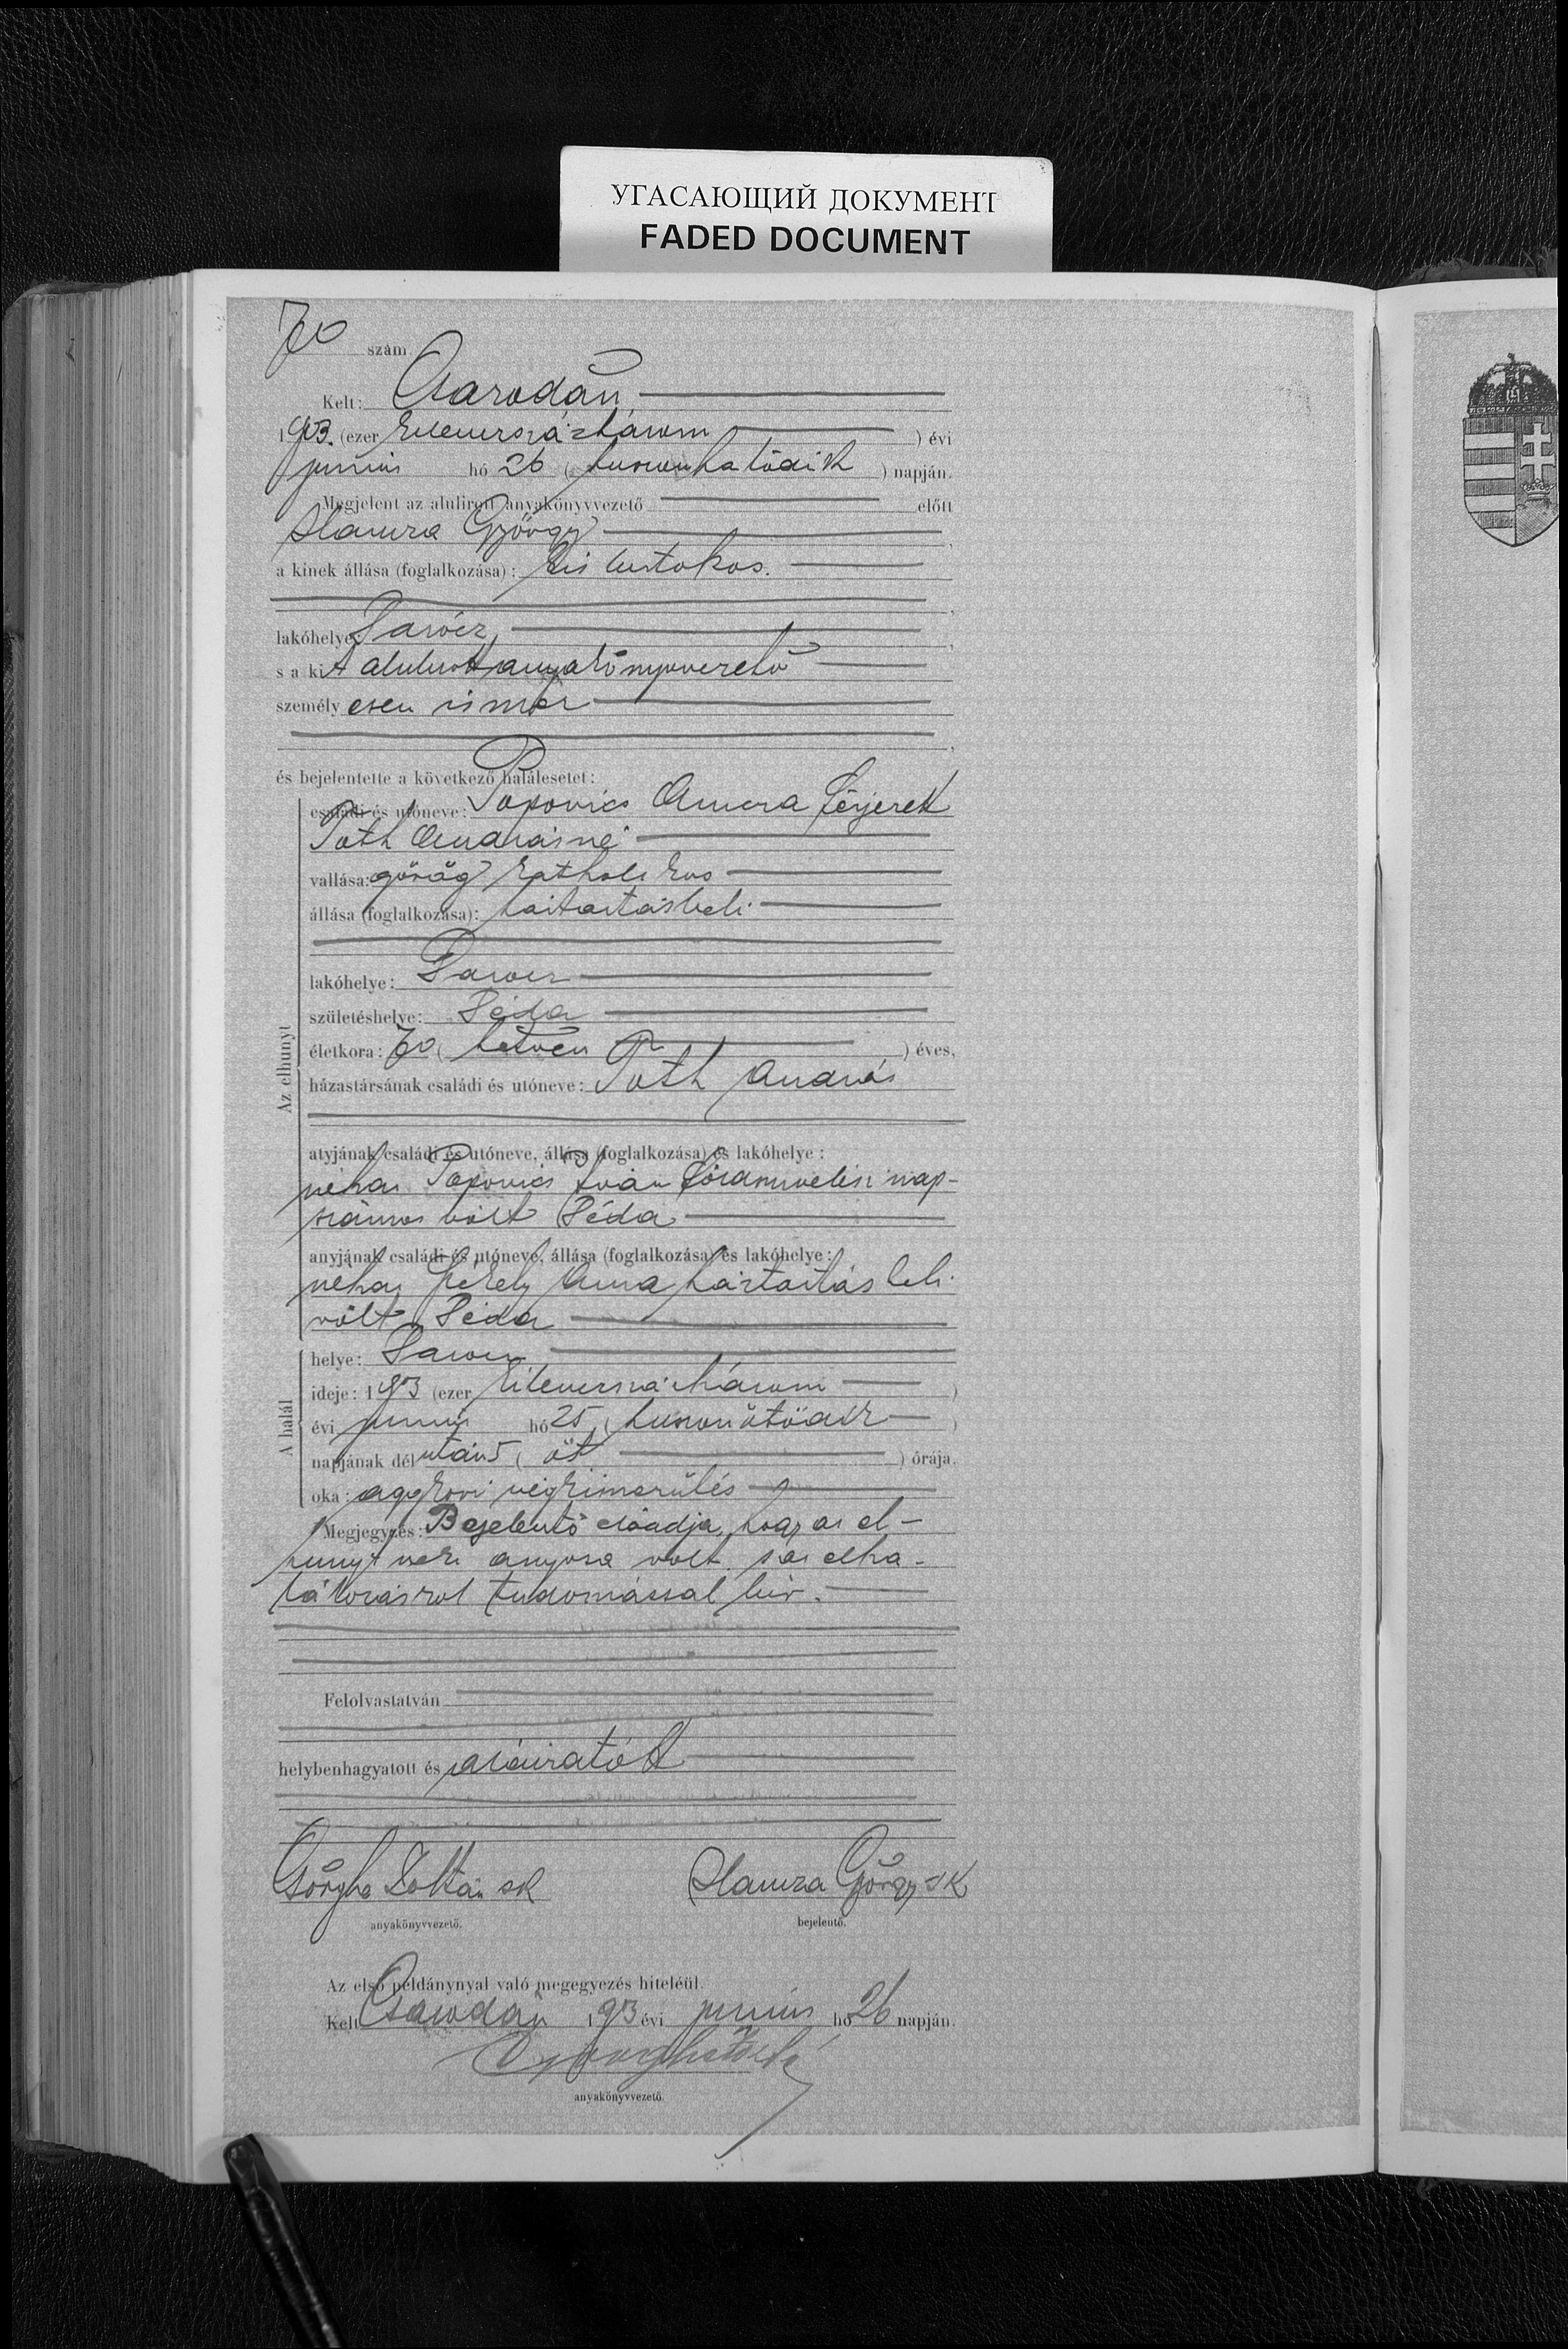 УГАСАЮЩИЙ ДОКУМЕНТ
FADED DOCUMENT
70 szám.
Kelt: Csarodán
1903. (ezer kilenczszázhárom ) évi
junius hó 26 ( huszonhatodik ) napján.
Megjelent az alulirott anyakönyvvezető előtt
Hamza György ,
a kinek állása (foglalkozása): kis birtokos.
,
lakóhelye ,
s a kit alulirott anyakönyvvezető
személy esen ismer
,
és bejelentette a következő halálesetet:
családi és utóneve: Popovics Anna férjezett
Toth Andrásné
vallása: görög katholikus
állása (foglalkozása): háztartásbeli
lakóhelye:
születéshelye: Péda
életkora: 70 ( hetven ) éves,
házastársának családi és utóneve: Toth András
Az elhunyt
atyjának családi és utóneve, állása (foglalkozása) és lakóhelye:
néhai Popovics Iván földmivelési nap-
számos volt Péda
anyjának családi és utóneve, állása (foglalkozása) és lakóhelye:
néhai Anna háztartásbeli
volt Péda
helye:
ideje: 1903 (ezer kilenczszázhárom )
évi junius hó 25 ( huszonötödik )
napjának dél után 5 ( öt ) órája.
oka: aggkori végkimerülés
A halál
Megjegyzés: Bejelentő előadja, hogy az el-
hunyt neki anyósa volt s az elha-
lálozásról tudomással bir.
Felolvastatván
helybenhagyatott és aláiratott
Zoltán sk Hamza György sk
anyakönyvvezető. bejelentő.
Az első példánynyal való megegyezés hiteléül.
Kelt Csarodán 1903 évi junius hó 26 napján.
anyakönyvvezető.